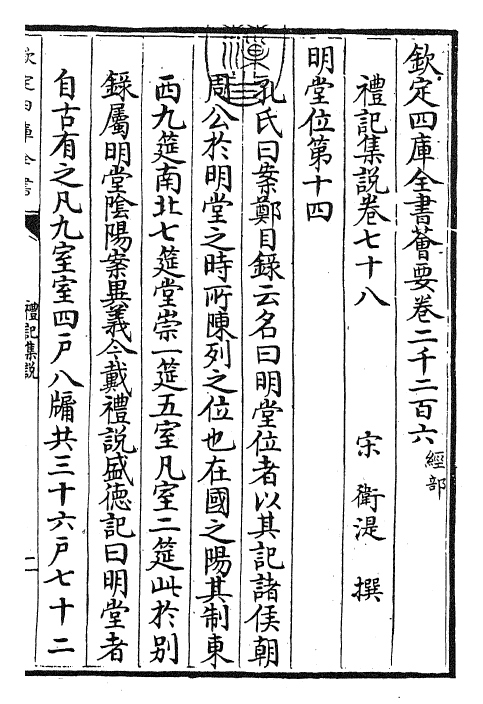 欽定四庫全書薈要卷二千二百六 經部
禮記集說卷七十八
宋 衛湜 撰
明堂位第十四
孔氏曰案鄭目錄云名曰明堂位者以其記諸侯朝
周公於明堂之時所陳列之位也在國之陽其制東
西九筵南北七筵堂崇一筵五室凡室二筵此於别
錄屬明堂陰陽案異義今戴禮說盛徳記曰明堂者
自古有之凡九室室四戸八牖共三十六戸七十二
欽定四庫全書
禮記集說